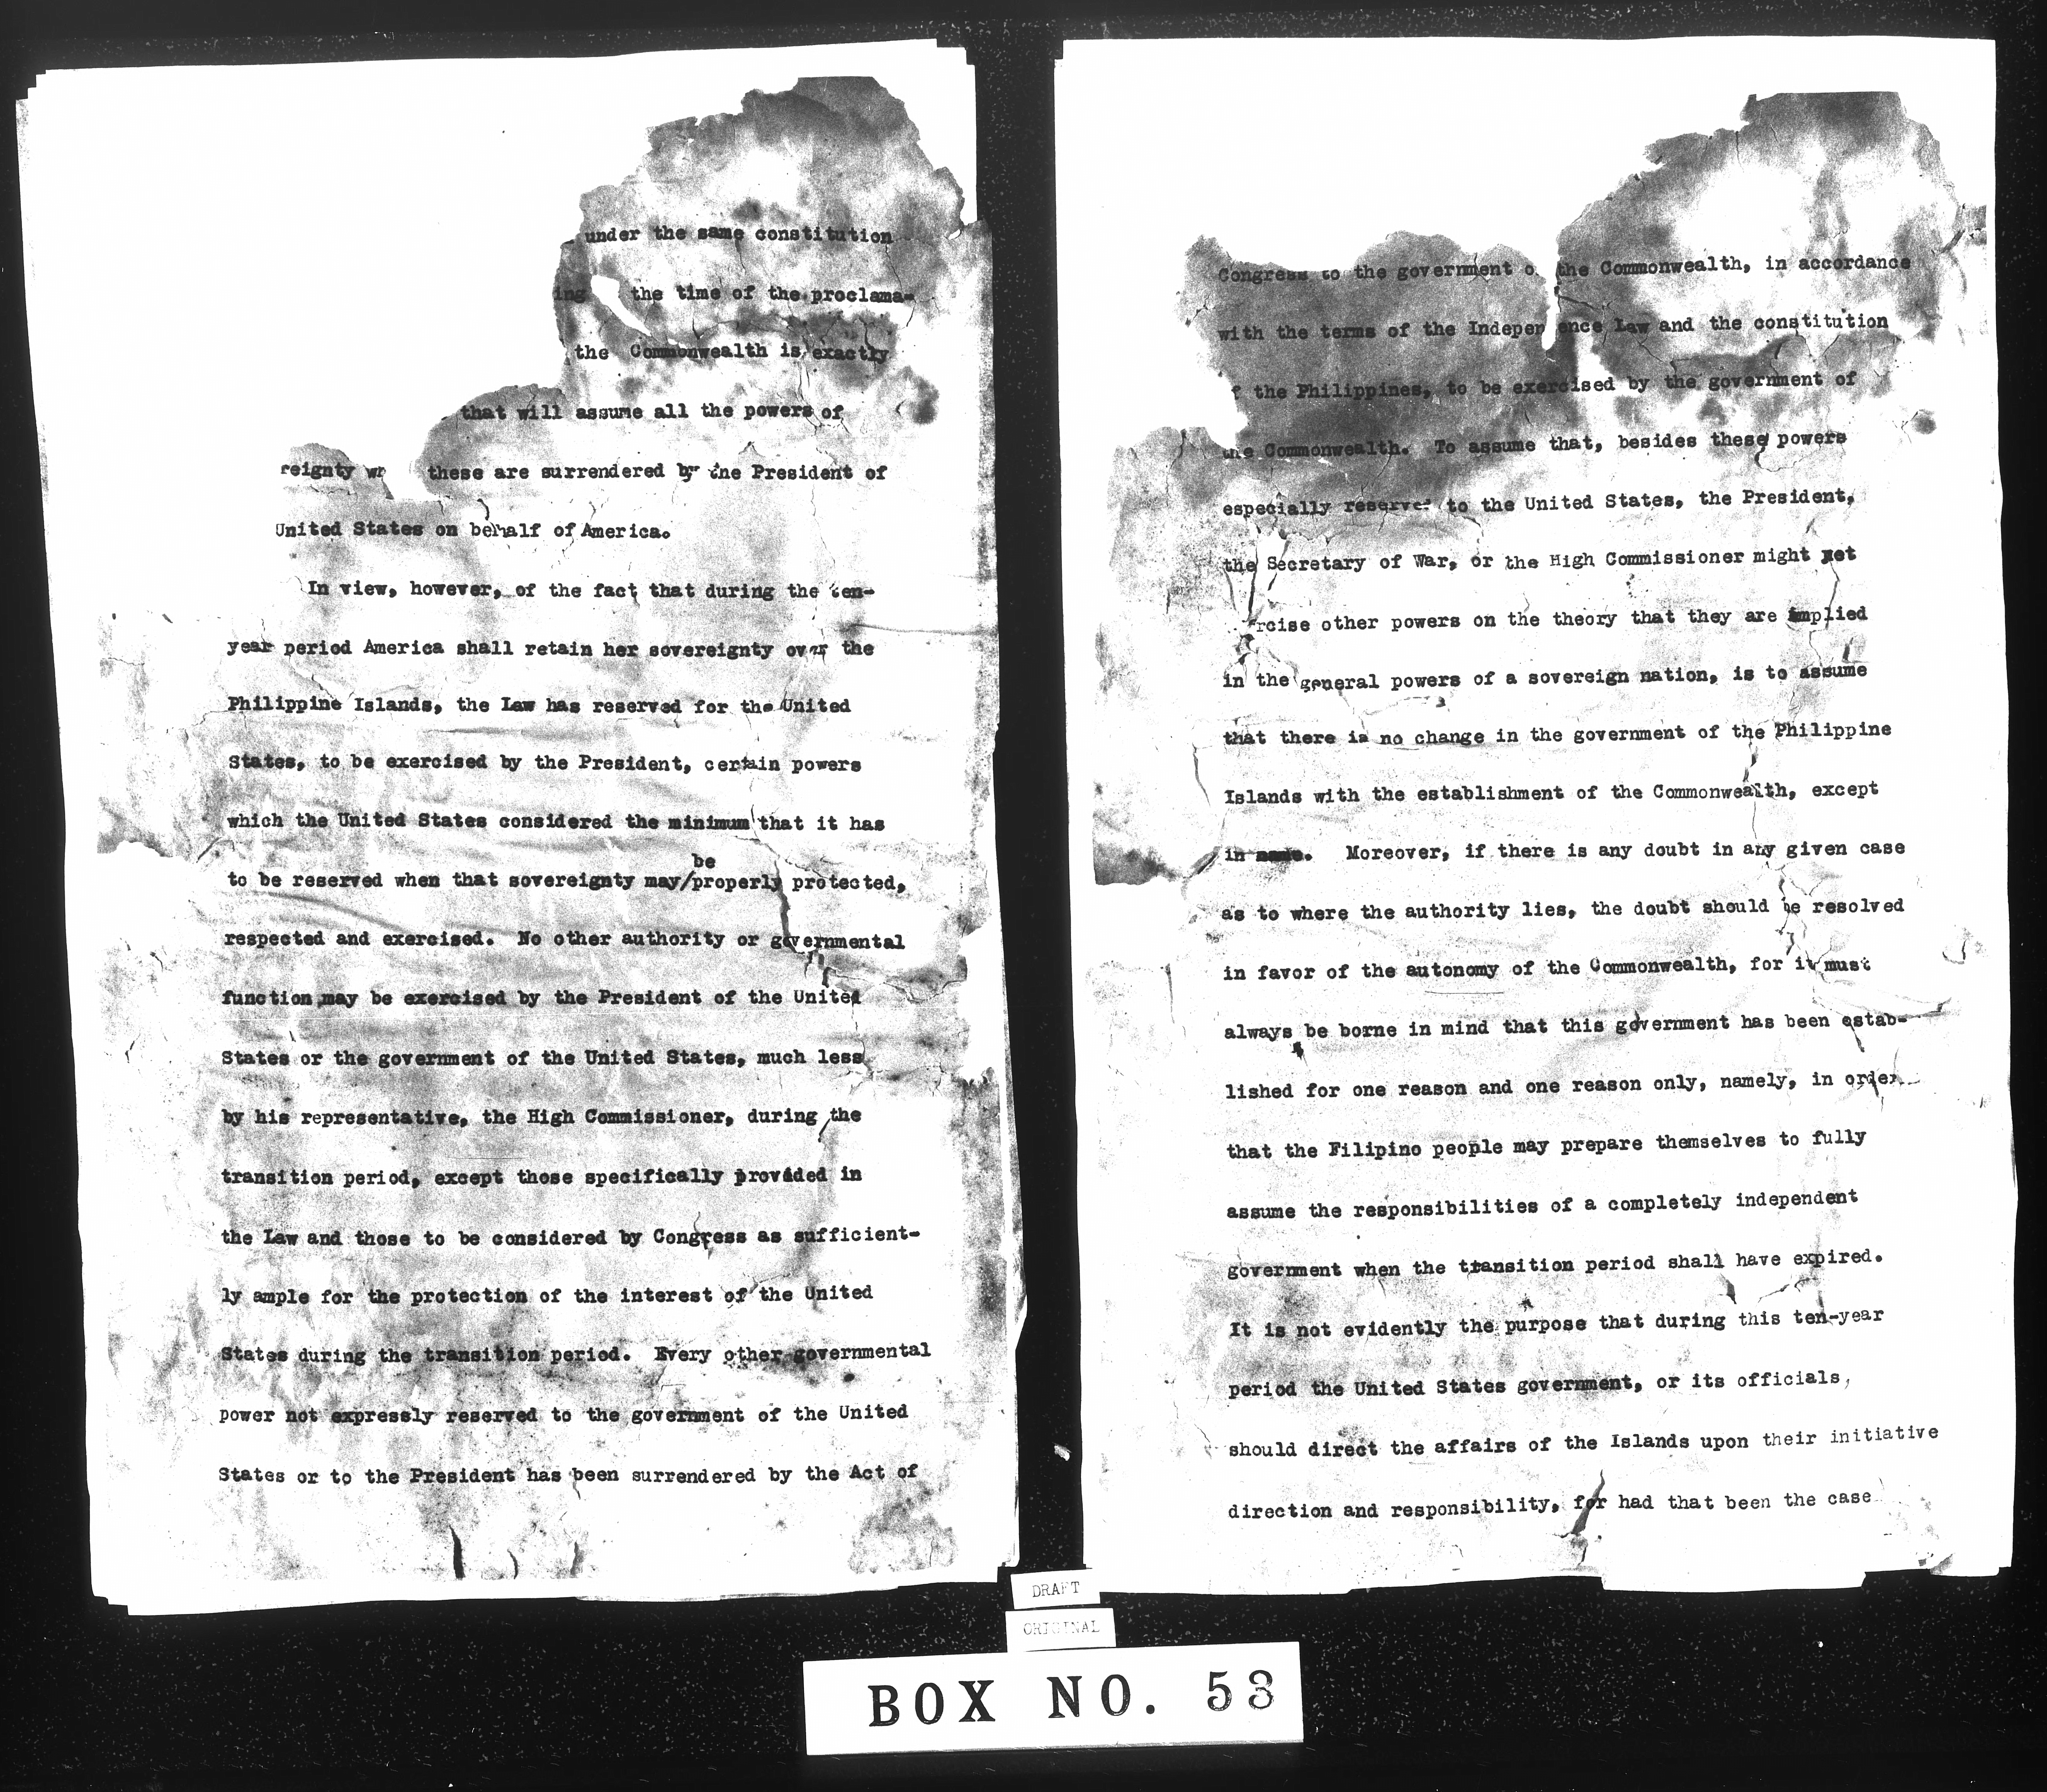 under the same constitution
ing the time of the proclama-
the Commonwealth is exactly
that will assume all the powers of
reignty these are surrendered by the President of
United States on behalf of America.
In view, however, of the fact that during the ten-
year period America shall retain her sovereignty over the
Philippine Islands, the Law has reserved for the United
States, to be exercised by the President, certain powers
which the United States considered the minimum that it has
be
to be reserved when that sovereignty may/properly protected,
respected and exercised. No other authority or governmental
function may be exercised by the President of the United
States or the government of the United States, much less
by his representative, the High Commissioner, during the
transition period, except those specifically provided in
the Law and those to be considered by Congress as sufficient-
ly ample for the protection of the interest of the United
States during the transition period. Every other governmental
power not expressly reserved to the government of the United
States or to the President has been surrendered by the Act of
Congress to the government o the Commonwealth, in accordance
with the terms of the Indepen ence Law and the constitution
f the Philippines, to be exercised by the government of
the Commonwealth. To assume that, besides these powers
especially reserved to the United States, the President,
the Secretary of War, or the High Commissioner might yet
rcise other powers on the theory that they are implied
in the general powers of a sovereign nation, is to assume
that there is no change in the government of the Philippine
Islands with the establishment of the Commonwealth, except
in name. Moreover, if there is any doubt in any given case
as to where the authority lies, the doubt should be resolved
in favor of the autonomy of the Commonwealth, for it must
always be borne in mind that this government has been estab-
lished for one reason and one reason only, namely, in order
that the Filipino people may prepare themselves to fully
assume the responsibilities of a completely independent
government when the transition period shall have expired.
It is not evidently the purpose that during this ten-year
period the United States government, or its officials,
should direct the affairs of the Islands upon their initiative
direction and responsibility, for had that been the case
DRAFT
ORIGINAL
BOX NO. 53